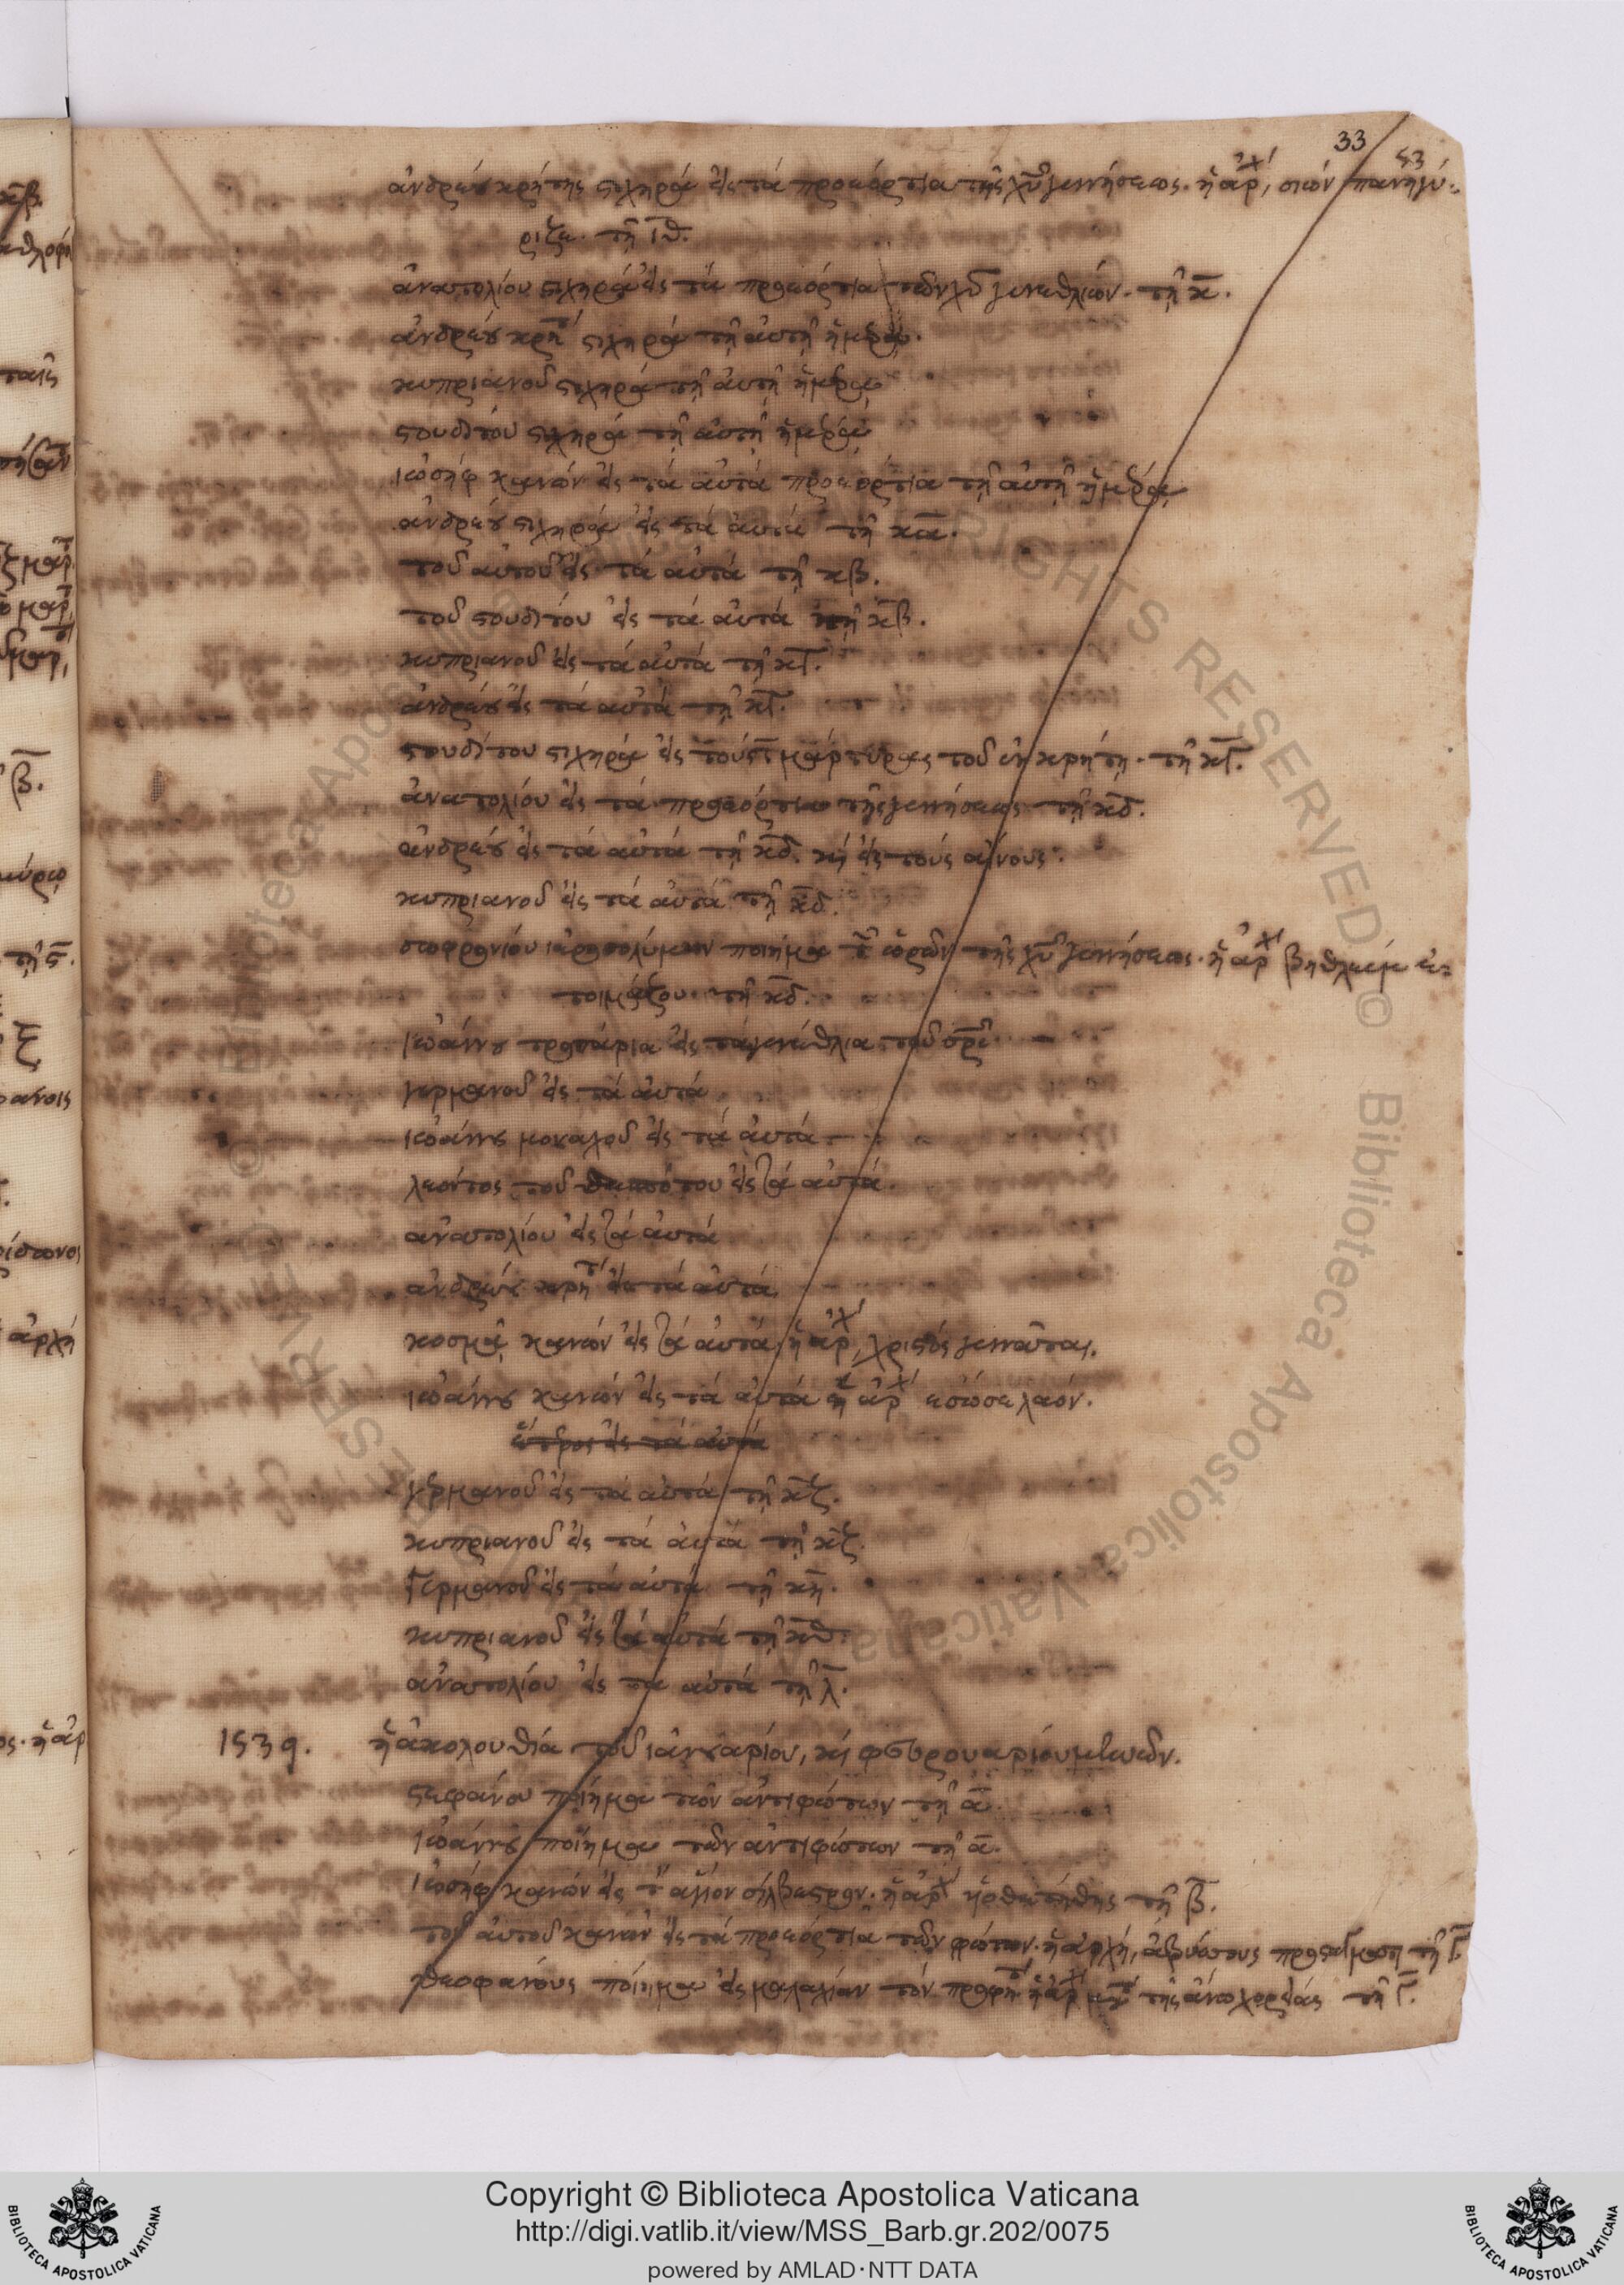 33
53
ἀνδρέου κρήτης στιχηρά εἰς τά προεόρτια τῆς χῦ γεννήσεως. ἡ ἀρχ, σιών πανηγύ-
ριζε. τῇ ιθ.
ἀνατολίου στιχηρά εἰς τά προεόρτια τῶν χῦ γενεθλίων. τῇ κ.
ἀνδρέου κρητ στιχηρά τῇ αὐτῇ ἡμέρᾳ.
κυπριανοῦ στιχηρά τῇ αὐτῇ ἡμέρᾳ
στουδίτου στιχηρά τῇ αὐτῇ ἡμέρᾳ
ἰωσήφ κανών εἰς τά αὐτά προεόρτια τῇ αὐτῇ ἡμέρᾳ
ἀνδρέου στιχηρά εἰς τά αὐτά τῇ κα.
τοῦ αὐτοῦ εἰς τά αὐτά τῇ κβ.
τοῦ στουδίτου εἰς τά αὐτά τῇ κβ.
κυπριανοῦ εἰς τά αὐτά τῇ κγ.
ἀνδρέου εἰς τά αὐτά τῇ κγ.
στουδίτου στιχηρά εἰς τούς ι μάρτυρας τοῦ ἐν κρήτῃ. τῇ κγ.
ἀνατολίου εἰς τά προεόρτια τῆς γεννήσεως τῇ κδ.
ἀνδρέου εἰς τά αὐτά τῇ κδ. κή εἰς τούς αἴνους.
κυπριανοῦ εἰς τά αὐτά τῇ κδ.
σωφρονίου ἱεροσολύμων ποίημα τ ὡρῶν τῆς χῦ γεννήσεως. ἡ ἀρχ βηθλεέμ ἑ-
τοιμάζου τῇ κδ.
ἰωάννου τροπάρια εἰς τά γενέθλια τοῦ σρς
γερμανοῦ εἰς τά αὐτά
ἰωάννου μοναχοῦ εἰς τά αὐτά
λέοντος τοῦ δεσπότου εἰς τά αὐτά.
ἀνατολίου εἰς τά αὐτά
ἀνδρέου κρητ εἰς τά αὐτά
κοσμᾶ κανών εἰς τά αὐτά ἡ ἀρχ, χριστός γεννᾶται.
ἰωάννου κανών εἰς τά αὐτά ἡ ἀρχ ἔσωσε λαόν.
ἕτερος εἰς τά αὐτά
γερμανοῦ εἰς τά αὐτά τῇ κζ.
κυπριανοῦ εἰς τά αὐτά τῇ κζ.
Γερμανοῦ εἰς τά αὐτά τῇ κη.
κυπριανοῦ εἰς τά αὐτά τῇ κθ.
ἀνατολίου εἰς τά αὐτά τῇ λ.
1539. ἡ ἀκολουθία τοῦ ἰανουαρίου, κή φευρουαρίου μηνῶν.
στεφάνου ποίημα τῶν ἀντιφώτων τῇ α.
ἰωάννου ποίημα τῶν ἀντιφώτων τῇ α.
ἰωσήφ κανών εἰς τ ἅγιον σίλβεστρον. ἡ ἀρχ τῇ β.
τοῦ αὐτοῦ κανών εἰς τά προεόρτια τῶν φώτων. ἡ ἀρχή, ἀβύσσους τῇ γ
θεοφάνους ποίημα εἰς μαλαχίαν τόν προφητ ἡ ἀρχ μετ τῆς ἄνω χορείας τῇ γ.
κβ.
ταῖς
β.
τῇ ς.
ξ
ἀρχή
Copyright © Biblioteca Apostolica Vaticana
http://digi.vatlib.it/view/MSS_Barb.gr.202/0075
powered by AMLAD·NTT DATA
BIBLIOTECA APOSTOLICA VATICANA
BIBLIOTECA APOSTOLICA VATICANA